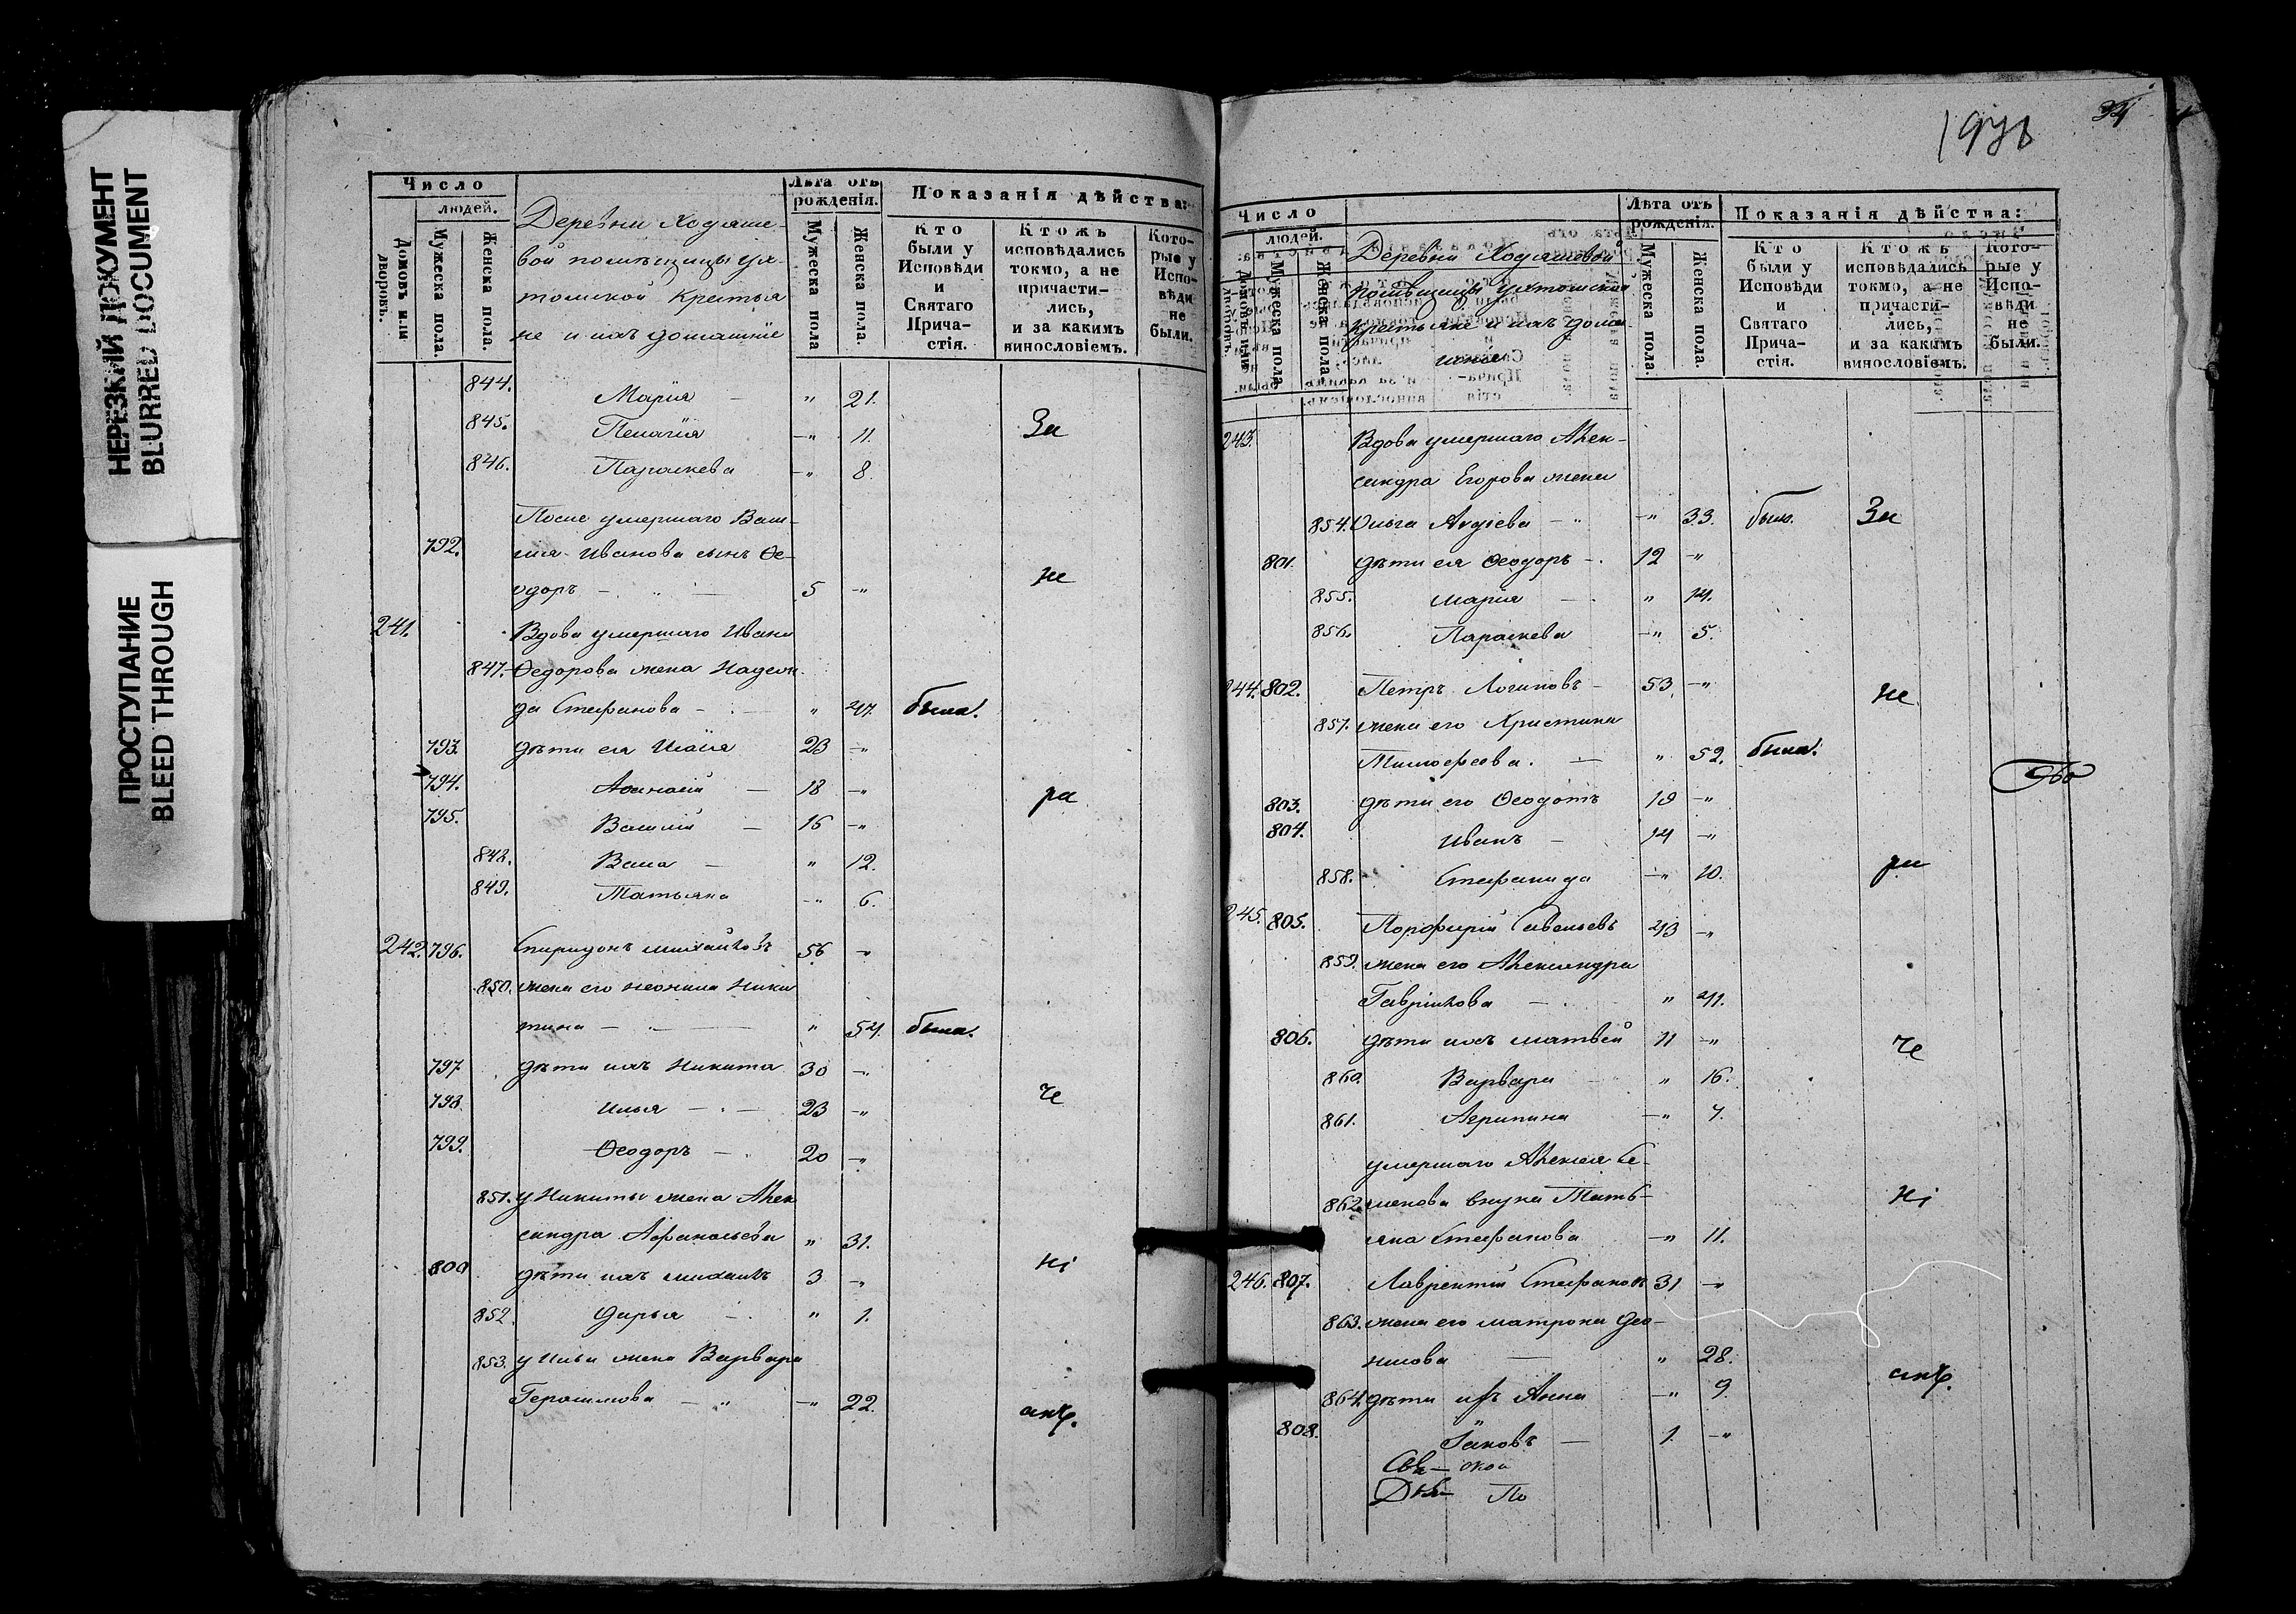 НЕРЕЗКИЙ ДОКУМЕНТ
BLURRED DOCUMENT
ПРОСТУПАНИЕ
BLEED THROUGH
Число
людей.
Домовъ или дворовъ.
Мужеска пола.
Женска пола.
Деревни Ходяше-
вой помѣщицы Ух-
томской Крестья
не и ихъ домашніе
Лѣта отъ рожденія.
Мужеска пола
Женска пола.
Показанія дѣйства:
Кто были у Исповѣди и Святаго Прича-стія.
Ктожъ исповѣдались токмо, а не причасти-лись, и за какимъ винословіемъ.
Кото-рые у Испо-вѣди не были.
844. Марія — " 21.
845. Пелагія — " 11. За
846. Параскева — " 8.
После умершаго Васи-
792. лія Иванова сынъ Ѳе-
одоръ — " — 5 — " не
241. Вдова умершаго Ивана
847. Ѳедорова жена Надеж
да Стефанова — " 47. была.
793. дѣти ея Исаія 23 — "
794. Аѳанасій — 18 — " ра
795. Василій — 16 — "
848. Васса — " 12.
849. Татьяна — " 6.
242. 796. Спиридонъ Михайловъ 56 — "
850. жена его Неонила Ники
тина — " 54. была.
797 дѣти ихъ Никита 30 — "
798. Илья — 23 — " че
799. Ѳеодоръ — 20 — "
851. у Никиты жена Алек
сандра Афанасьева " 31.
800 дѣти ихъ Михаилъ 3 — " ні
852. Дарья — " 1.
853. у Ильи жена Варвара
Герасимова — " — " 22. емъ.
34
Число
людей.
Домовъ или дворовъ.
Мужеска пола.
Женска пола.
Деревни Ходяшевой
помѣщицы Ухтомской
крестьяне и ихъ дома
шніе
Лѣта отъ рожденія.
Мужеска пола.
Женска пола
Показанія дѣйства:
Кто были у Исповѣди и Святаго Прича-стія.
Ктожъ исповѣдались токмо, а не причасти-лись, и за какимъ винословіемъ.
Кото-рые у Испо-вѣди не были.
243. Вдова умершаго Алек-
сандра Егорова жена
854. Ольга Авдіева — " — " 33. была. За
801. дѣти ея Ѳеодоръ — 12 — "
855. Марія — " 14.
856. Параскева — " 5.
244. 802. Петръ Логиновъ — 53. — " не
857. жена его Христина
Тимофеева. — " 52. была.
803. дѣти его Ѳеодотъ 19 — "
804. Иванъ — 14 — "
858. Стефанида — " 10. ра
245. 805. Порфирій Савельевъ 43 — "
859. жена его Александра
Гаврилова — " 41.
806. дѣти ихъ Матвѣй 11 — " че
860. Варвара — " 16.
861. Агрипина — " 7.
умершаго Алексея Се-
862. менова внука Тать- ні
яна Стефанова — " 11.
246. 807. Лаврентій Стефановъ 31 — "
863. жена его Матрона Део-
нисова — " 28.
864. дѣти ихъ Анна — " 9. емъ.
808. Іаковъ — 1. — "